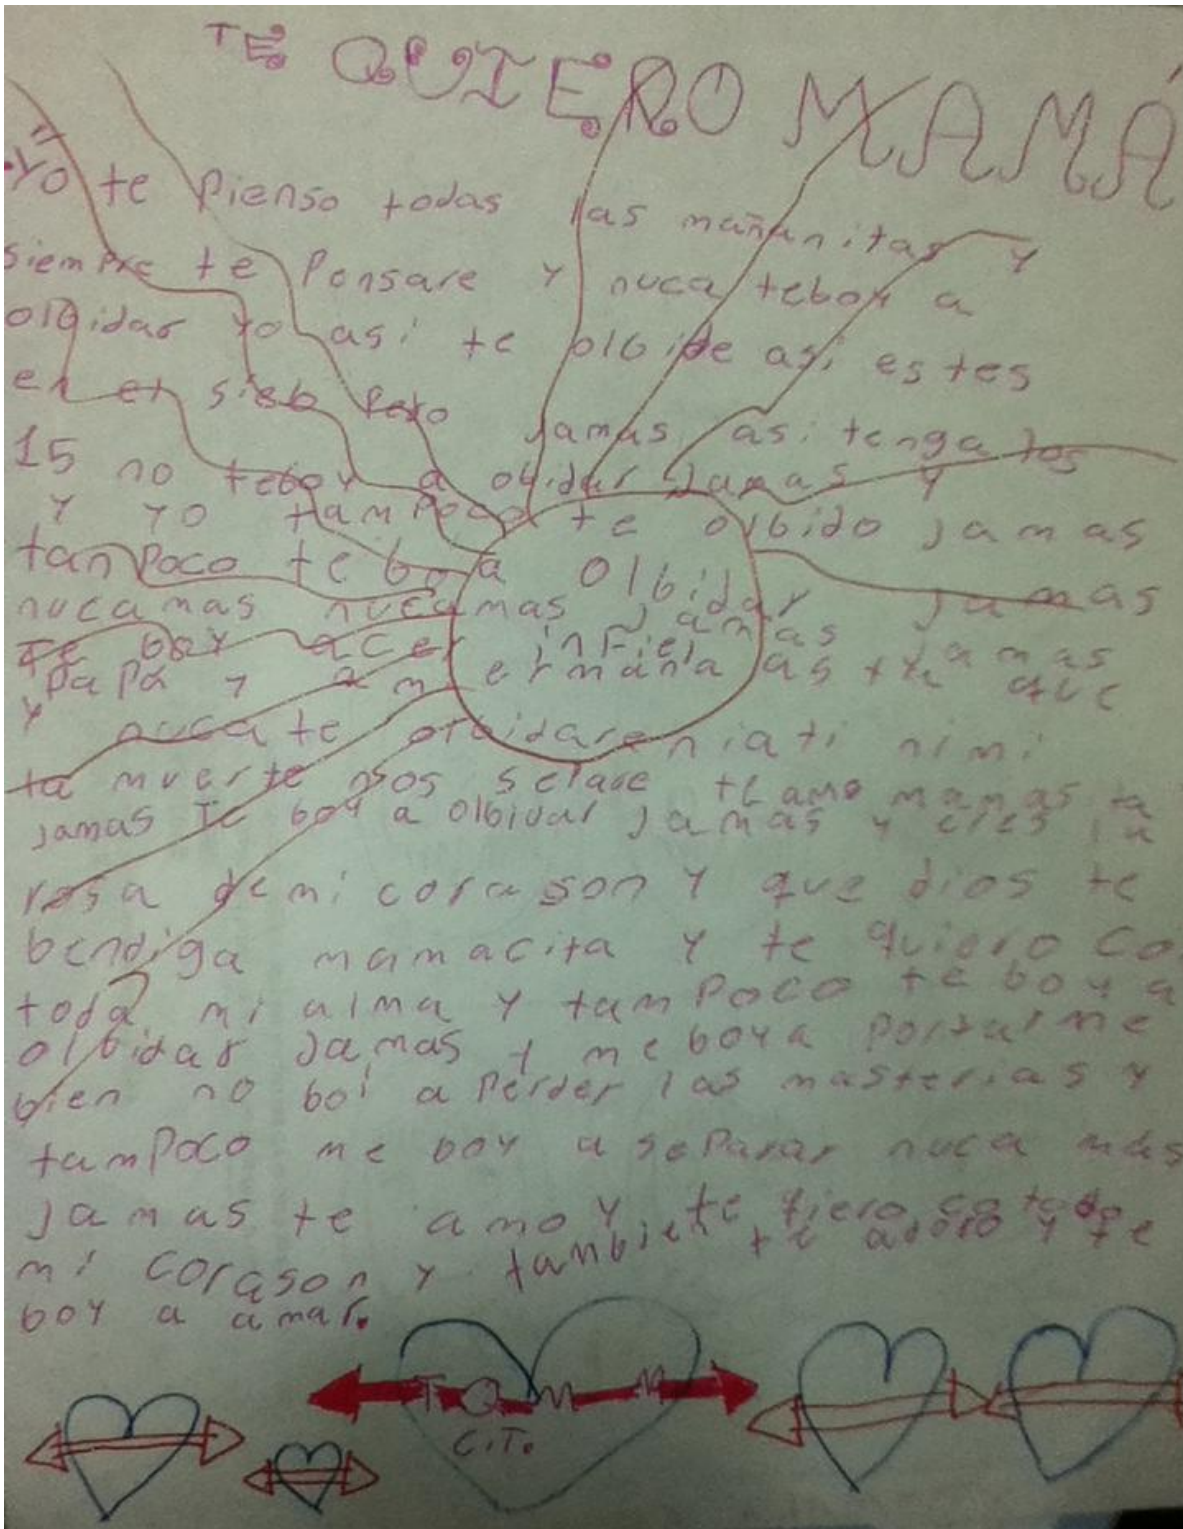 TE QUIERO MAMÁ
Yo te Pienso todas las mañanitas y
siempre te Pensare y nuca teboy a
olbidar yo asi te olbide asi estes
en el sielo Pero jamas asi tenga los
15 no teboy a olbidar jamas y
y yo tampoco te olbido jamas
tanpoco te boy a olbidar jamas
nucamas nucamas jamas
Te boy acer infiel jamas
y papá y a mi ermana as que
y nuca te olbidare ni a ti ni mi
ta muerte nos selase te amo mamas ta
jamas Te boy a olbidar jamas y eres la
rosa demi corason y que dios te
bendiga mamacita y te quiero co
toda mi alma y tampoco te boy a
olbidar jamas y me boy a portarme
bien no boi a Perder las masterias y
tamPoco me boy a seParar nuca más
jamas te amo y te qiero co todo
mi corason y tambien te adoro y te
boy a amar.
T Q M M
C.T.